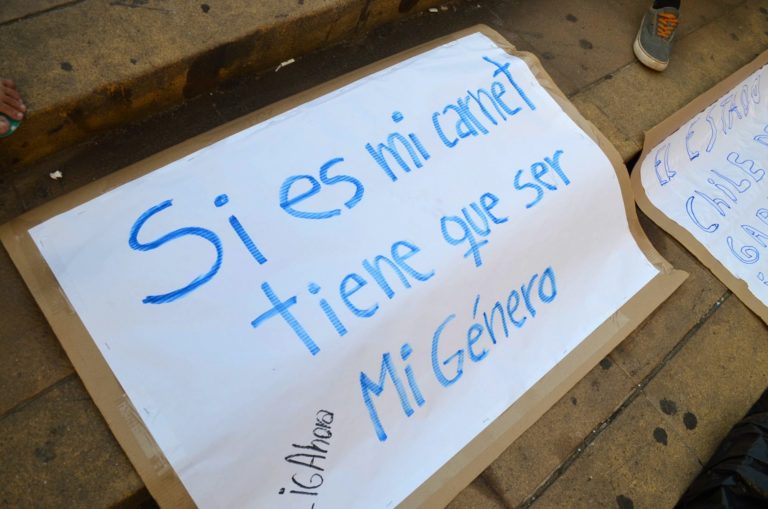 Si es mi carnet
tiene que ser
Mi Género
iGAhora
EL ESTADO
CHILE DE
GAR